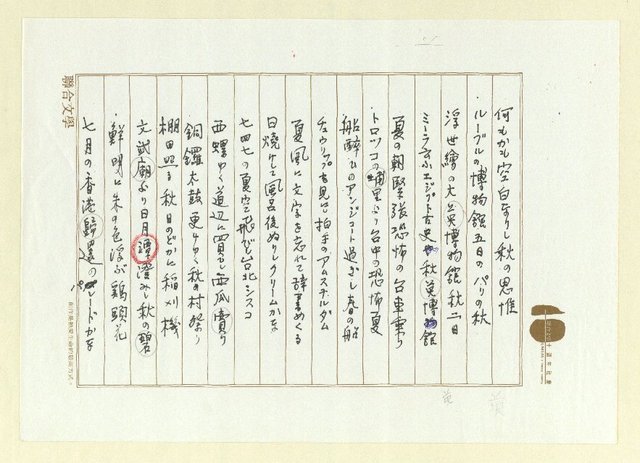 何もかも空白なりし秋の思惟
・ルーブルの博物館五日のパリの秋
浮世繪の大英博物館秋二日
ミーラ云ふエジプト古史や秋英博物館
夏の朝緊張恐怖の台車乗り
・トロッコの埔里より台中の恐怖夏
船酔ムのアンジコート過ぎし春の船
チュウリップを見に拍手のアムステルダム
夏風に文字を忘れて辞書めくる
日燒けして風呂後ぬりしクリームかな
七四七の夏空で飛ぶ台北シスコ
西螺ゆく道辺に買ひし西瓜賣り
銅鑼太鼓更けゆく秋の村祭り
棚田照る秋日のどかに稲刈機
文武廟より日月潭澄みし秋の碧
・鮮明に朱の色浮ぶ鶏頭花
七月の香港歸還のパレードかな
聯合文學